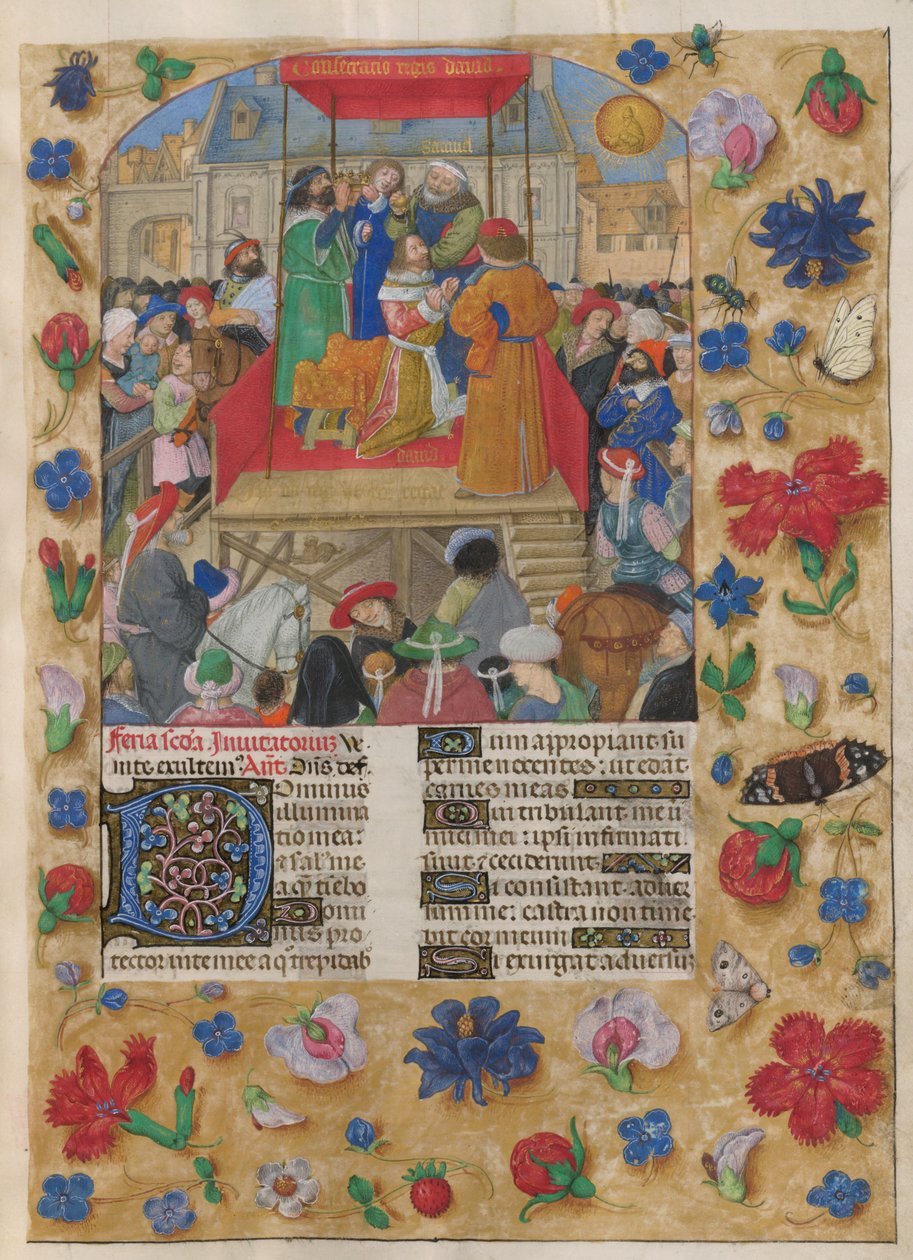 Consecratio regis david
Samuel
david
Feria scďa. Invitatoriū Ve
nite exultem⁹ Añt. Dñs def.
Dominus
illumina
tio mea:
⁊ salus me
a q̄ tiēbo
Domi
nus pro
tector vite mee a q̊ trepidabo
Dum appropiant su
per me nocentes: ut edant
carnes meas
Qui tribulant me i
nimici mei: ipsi infirmati
sunt ⁊ ceciderunt
Si consistant adver
sum me: castra non time
bit cor meum
Si exurgat adversus